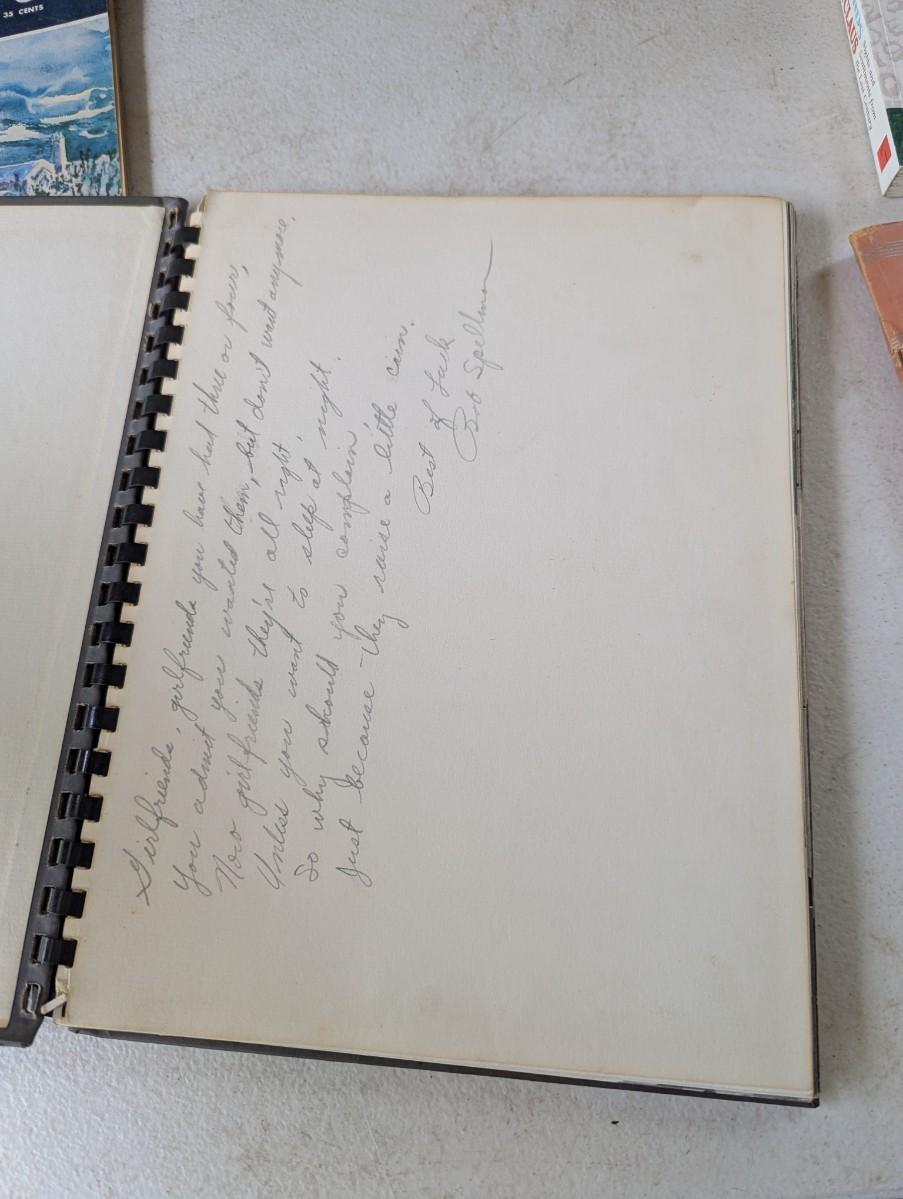 35 CENTS
Girlfriends, girlfriends you have had three or four,
You admit you wanted them, but don't want anymore.
Now girlfriends they're all right,
Unless you want to sleep at night.
So why should you complain,
Just because they raise a little cain.
Best of Luck
Bob Spellman
CLAUS